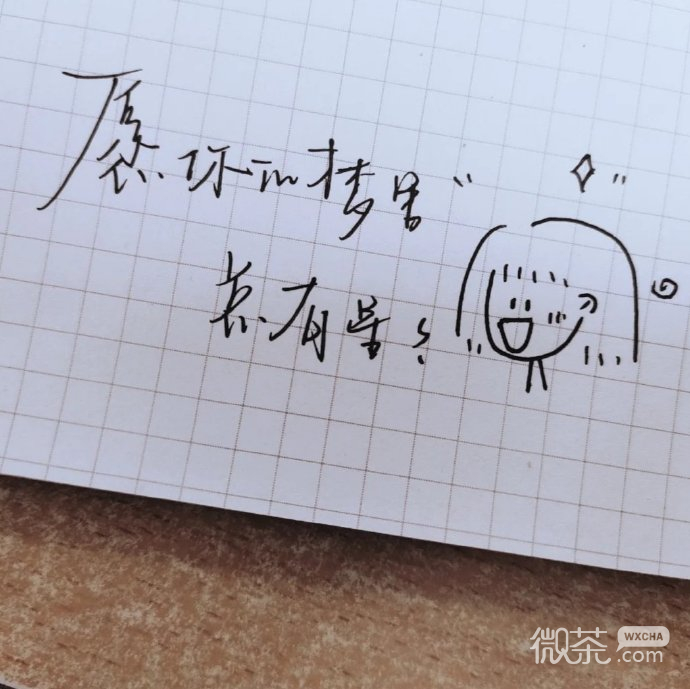 愿你的梦里
总有星々
微茶 WXCHA
.com